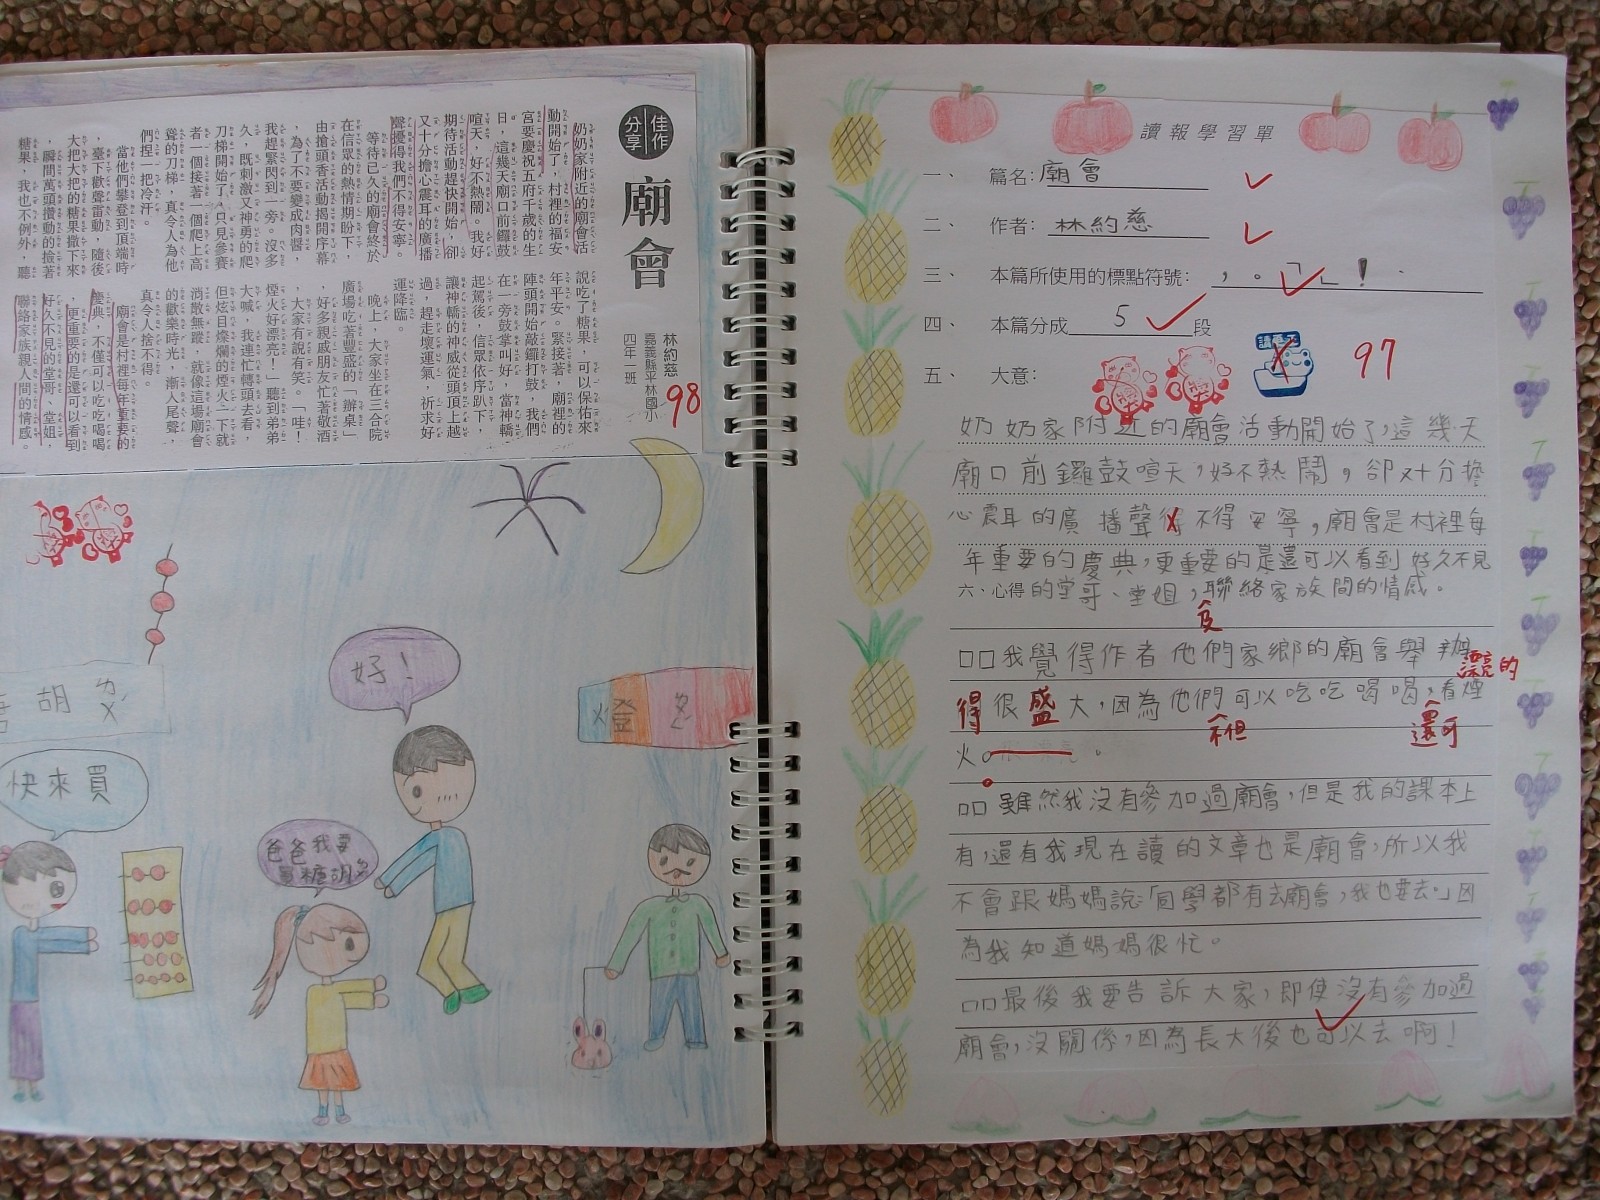 佳作
分享
廟會
林約慈
嘉義縣平林國小
四年一班
98
奶奶家附近的廟會活
動開始了，村裡的福安
宮要慶祝五府千歲的生
日，這幾天廟口前鑼鼓
喧天，好不熱鬧。我好
期待活動趕快開始，卻
又十分擔心震耳的廣播
聲擾得我們不得安寧。
等待已久的廟會終於
在信眾的熱情期盼下，
由搶頭香活動揭開序幕
，為了不要變成肉醬，
我趕緊閃到一旁。沒多
久，既刺激又神勇的爬
刀梯開始了，只見參賽
者一個接著一個爬上高
聳的刀梯，真令人為他
們捏一把冷汗。
當他們攀登到頂端時
，臺下歡聲雷動，隨後
大把大把的糖果撒下來
，瞬間萬頭攢動的撿著
糖果，我也不例外，聽
說吃了糖果，可以保佑來
年平安。緊接著，廟裡的
陣頭開始敲鑼打鼓，我們
在一旁鼓掌叫好，當神轎
起駕後，信眾依序趴下，
讓神轎的神威從頭頂上越
過，趕走壞運氣，祈求好
運降臨。
晚上，大家坐在三合院
廣場吃著豐盛的「辦桌」
，好多親戚朋友忙著敬酒
，大家有說有笑。「哇！
煙火好漂亮！」聽到弟弟
大喊，我連忙轉頭去看，
但炫目燦爛的煙火一下就
消散無蹤，就像這場廟會
的歡樂時光，漸入尾聲，
真令人捨不得。
廟會是村裡每年重要的
慶典，不僅可以吃吃喝喝
，更重要的是還可以看到
好久不見的堂哥、堂姐，
聯絡家族親人間的情感。
好！
胡ㄌㄨˊ
快來買
爸爸我要
買糖胡ㄌㄨˊ
燈
讀報學習單
一、 篇名：廟會
二、 作者：林約慈
三、 本篇所使用的標點符號：，。「」！
四、 本篇分成5段
五、 大意：
97
奶奶家附近的廟會活動開始了，這幾天
廟口前鑼鼓喧天，好不熱鬧，卻又十分擔
心震耳的廣播聲得不得安寧，廟會是村裡每
年重要的慶典，更重要的是還可以看到好久不見
六、心得 的堂哥、堂姐，聯絡家族間的情感。
我覺得作者他們家鄉的廟會舉辦
漂亮的
得很盛大，因為他們可以吃吃喝喝，看煙
不但 還可
火。
雖然我沒有參加過廟會，但是我的課本上
有，還有我現在讀的文章也是廟會，所以我
不會跟媽媽說：「同學都有去廟會，我也要去。」因
為我知道媽媽很忙。
最後我要告訴大家，即使沒有參加過
廟會，沒關係，因為長大後也可以去啊！